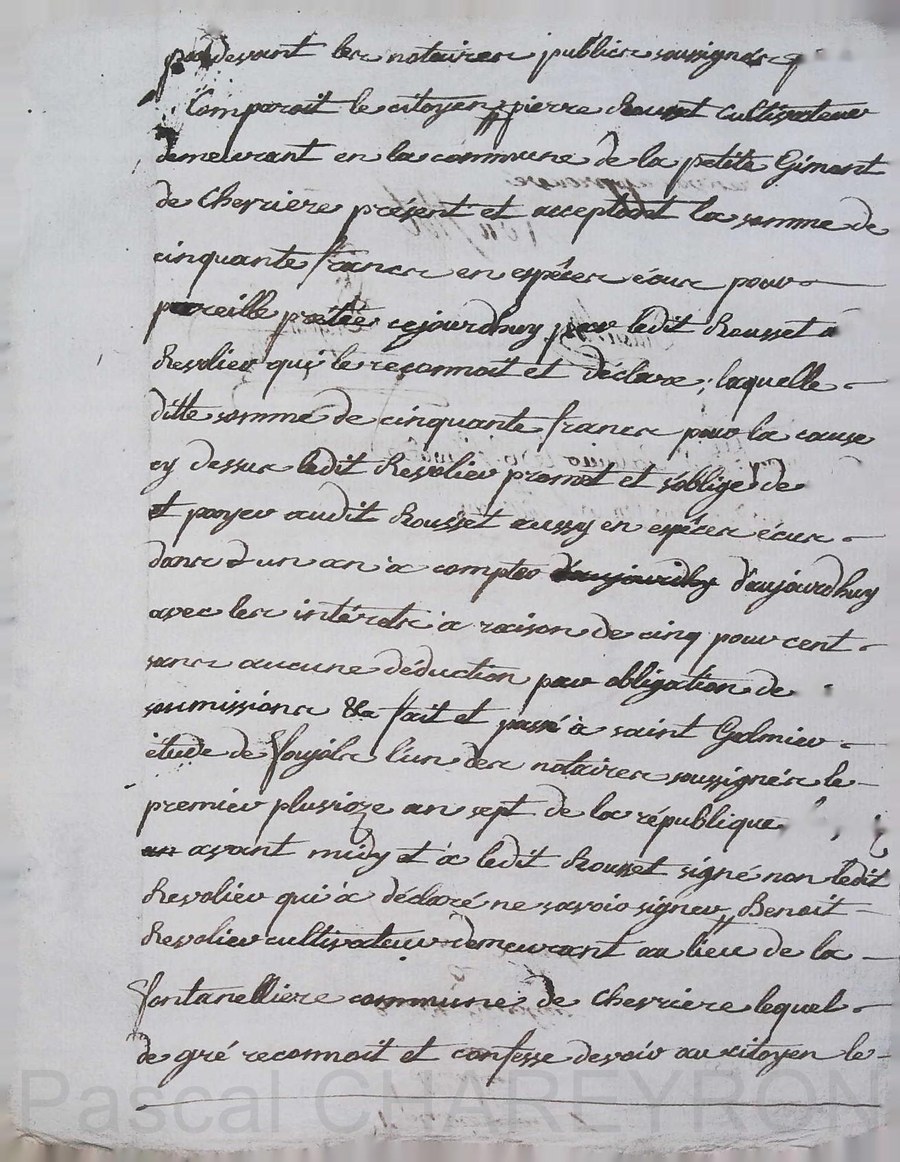 pardevant les notaires publics soussignés
Comparoit le citoyen pierre Rousset cultivateur
demeurant en la commune de la petite Gimont
de Cherriere présent et acceptant la somme de
cinquante francs en espèces écus pour
pareille pretée cejourdhuy par ledit Rousset a
Revolier qui le reconnoit et déclare ; laquelle
ditte somme de cinquante francs pour la cause
cy dessus ledit Revolier promet et s'oblige de
et payer audit Rousset aussy en espèces écus
dans d un an a compter daujourdhuy d'aujourdhuy
avec les intérets à raison de cinq pour cent
sans aucune déduction par obligation de
soumissions &a fait et passé à saint Galmier
étude de l'un des notaires soussignés le
premier plusioze an sept de la république
an avant midy et à ledit Rousset signé non ledit
Revolier qui à déclaré ne savoir signer, Benoit
Revolier cultivateur demeurant au lieu de la
fontanelliere commune de Cherriere lequel
de gré reconnoit et confesse devoir au citoyen le
Pascal CHAREYRON